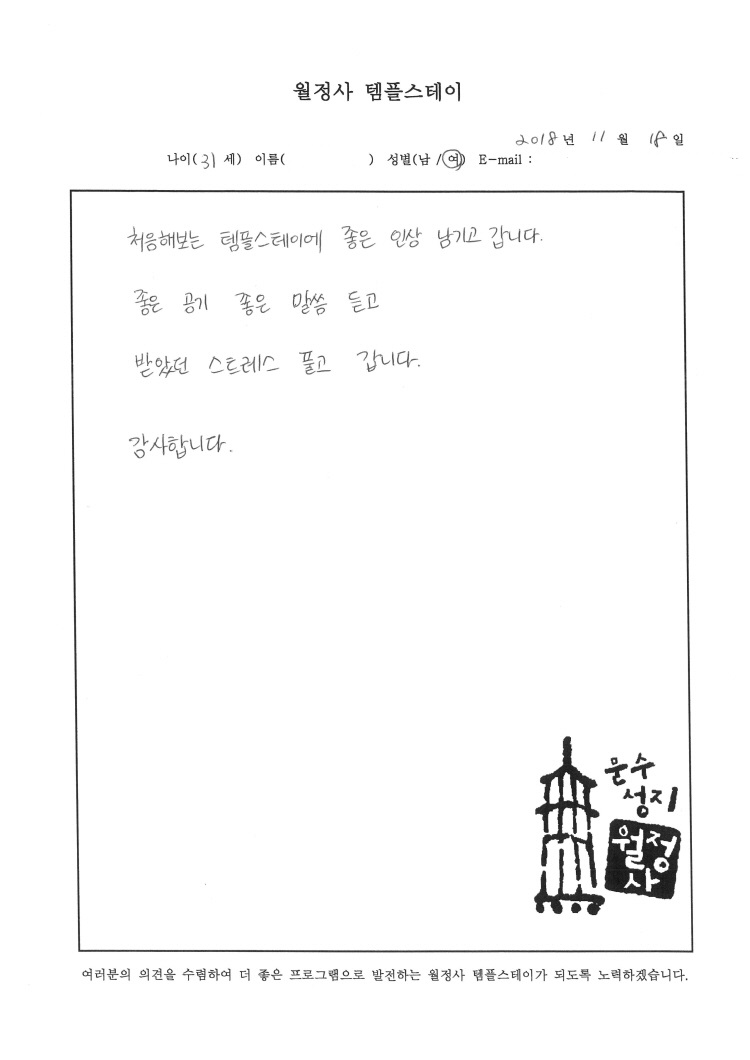 월정사 템플스테이
2018년 11 월 18 일
나이( 31 세) 이름( ) 성별(남 / 여) E-mail :
처음해보는 템플스테이에 좋은 인상 남기고 갑니다.
좋은 공기 좋은 말씀 듣고
받았던 스트레스 풀고 갑니다.
감사합니다.
문수
성지
월정
사
여러분의 의견을 수렴하여 더 좋은 프로그램으로 발전하는 월정사 템플스테이가 되도록 노력하겠습니다.